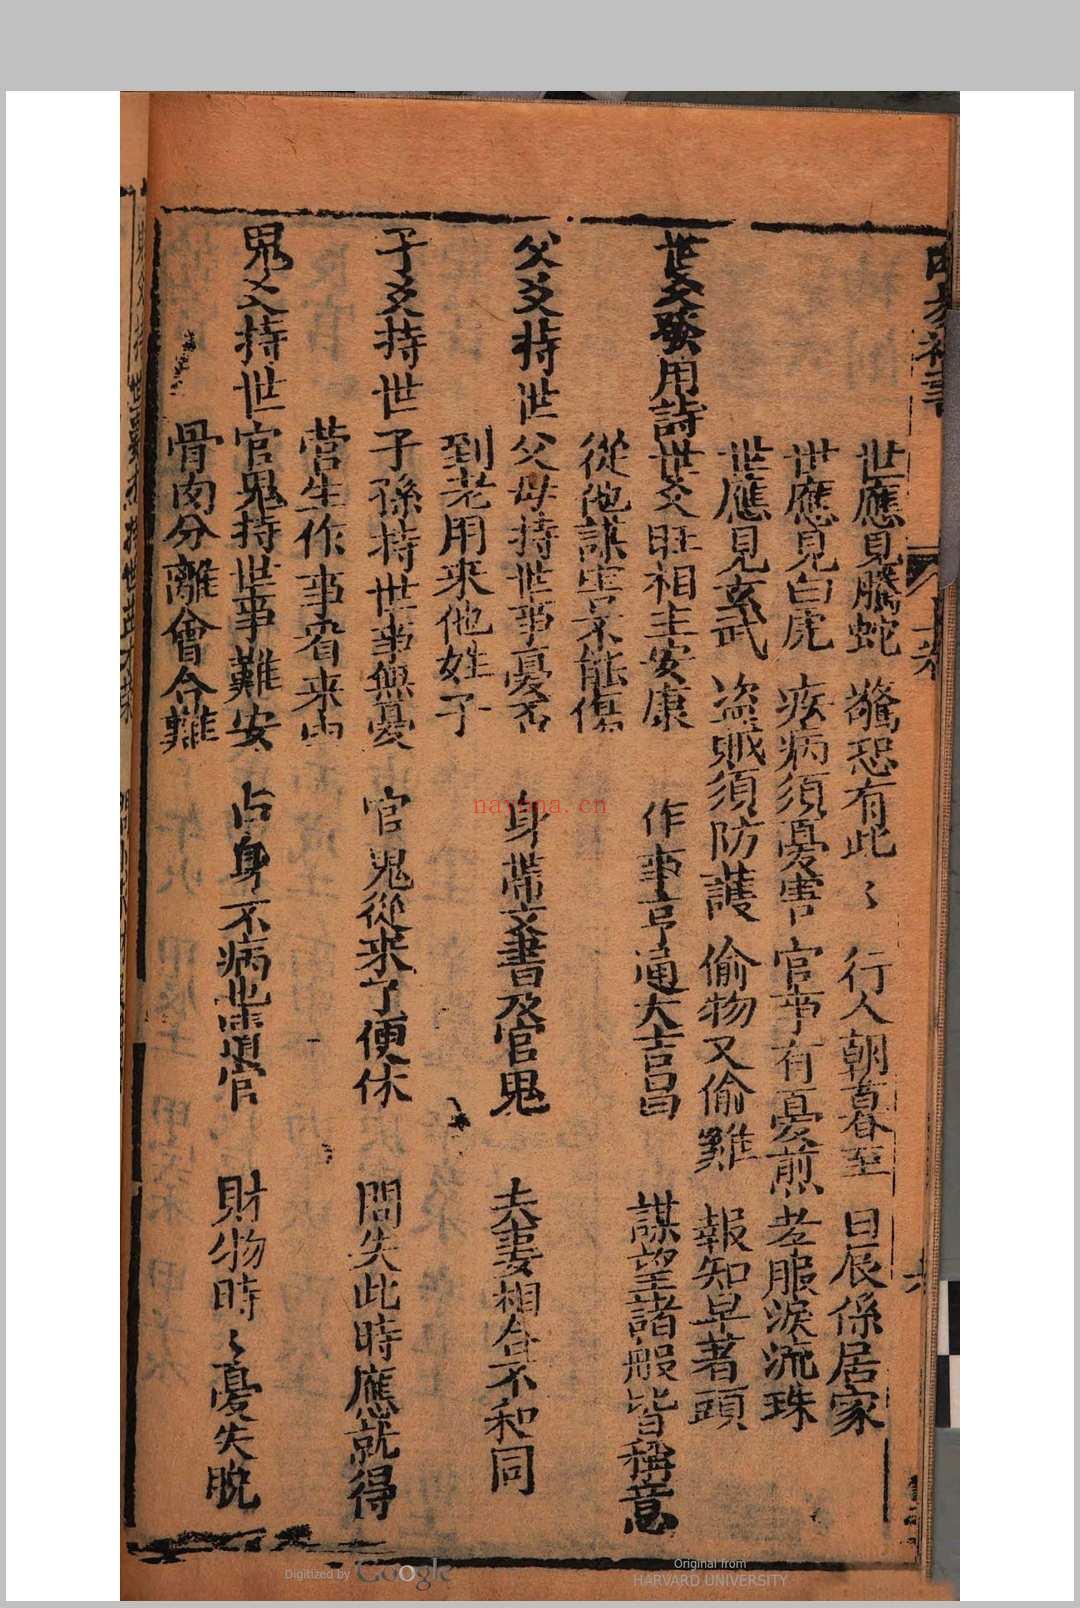 世應見騰蛇 驚恐有此〻 行人朝暮至 日辰係居家
世應見白虎 疾病須憂害 官事有憂煎 孝服淚流珠
世應見玄武 盜賊須防護 偷物又偷雞 報知早著頭
世爻發用詩 世爻旺相主安康 作事亨通大吉昌 謀望諸般皆稱意
從他謀害不能傷
父爻持世 父母持世事憂否 身帶文書及官鬼 夫妻相合不和同
到老用來他姓子
子爻持世 子孫持世事無憂 官鬼從來了便休 問失此時應就得
營生作事省來由
鬼爻持世 官鬼持世事難安 占身不病也遭官 財物時〻憂失脫
骨肉分離會合難
nayona.cn
Digitized by Google
Original from
HARVARD UNIVERSITY